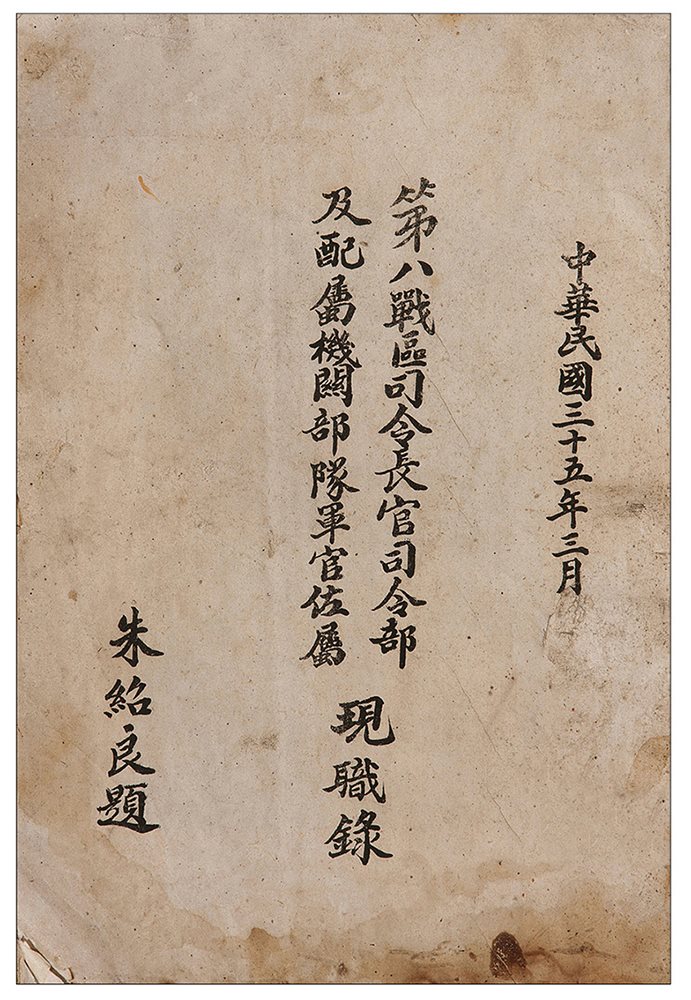 中華民國三十五年三月
第八戰區司令長官司令部
及配屬機關部隊軍官佐屬
現職錄
朱紹良題